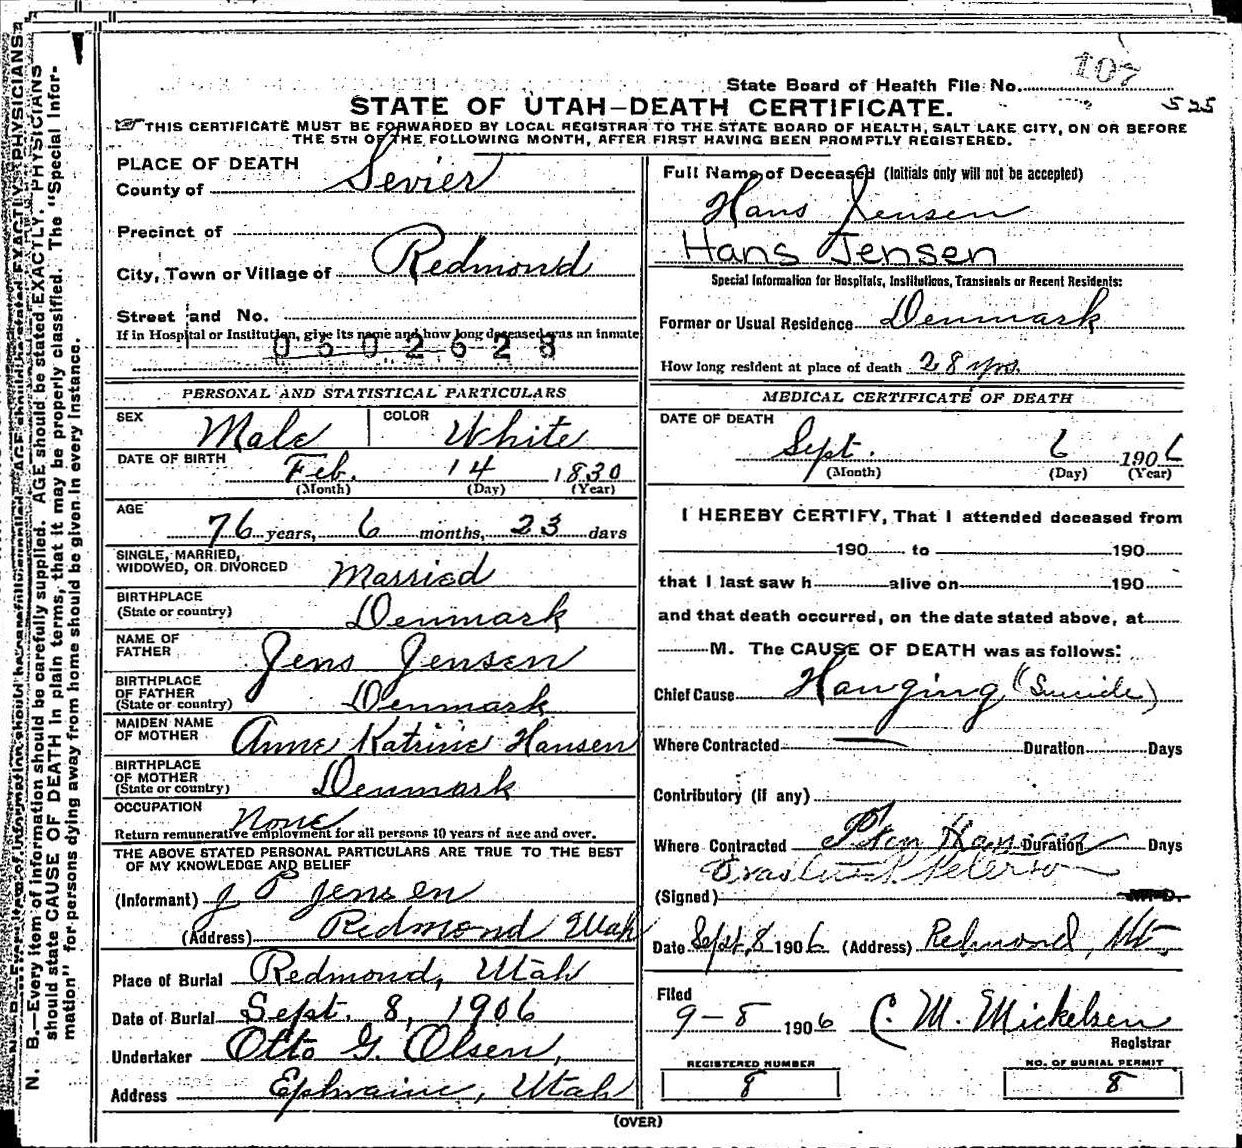 State Board of Health File No. 107
STATE OF UTAH—DEATH CERTIFICATE.
525
THIS CERTIFICATE MUST BE FORWARDED BY LOCAL REGISTRAR TO THE STATE BOARD OF HEALTH, SALT LAKE CITY, ON OR BEFORE
THE 5TH OF THE FOLLOWING MONTH, AFTER FIRST HAVING BEEN PROMPTLY REGISTERED.
PLACE OF DEATH
County of Sevier
Precinct of
City, Town or Village of Redmond
Street and No.
If in Hospital or Institution, give its name and how long deceased was an inmate
0502628
PERSONAL AND STATISTICAL PARTICULARS
SEX Male COLOR White
DATE OF BIRTH Feb. 14 1830
(Month) (Day) (Year)
AGE 76 years, 6 months, 23 days
SINGLE, MARRIED,
WIDOWED, OR DIVORCED Married
BIRTHPLACE
(State or country) Denmark
NAME OF
FATHER Jens Jensen
BIRTHPLACE
OF FATHER
(State or country) Denmark
MAIDEN NAME
OF MOTHER Anne Katrine Hansen
BIRTHPLACE
OF MOTHER
(State or country) Denmark
OCCUPATION None
Return remunerative employment for all persons 10 years of age and over.
THE ABOVE STATED PERSONAL PARTICULARS ARE TRUE TO THE BEST
OF MY KNOWLEDGE AND BELIEF
(Informant) J P Jensen
(Address) Redmond Utah
Place of Burial Redmond, Utah
Date of Burial Sept. 8, 1906
Undertaker Otto G. Olsen,
Address Ephraim, Utah
Full Name of Deceased (Initials only will not be accepted)
Hans Jensen
Hans Jensen
Special Information for Hospitals, Institutions, Transients or Recent Residents:
Former or Usual Residence Denmark
How long resident at place of death 28 yrs.
MEDICAL CERTIFICATE OF DEATH
DATE OF DEATH
Sept. 6 1906
(Month) (Day) (Year)
I HEREBY CERTIFY, That I attended deceased from
190 to 190
that I last saw h alive on 190
and that death occurred, on the date stated above, at
M. The CAUSE OF DEATH was as follows:
Chief Cause Hanging (Suicide)
Where Contracted — Duration Days
Contributory (if any)
Where Contracted Duration Days
Peterson
(Signed) M.D.
Date Sept. 8 1906 (Address) Redmond, Ut
Filed
9-8 1906 C. M. Mickelsen
Registrar
REGISTERED NUMBER
8
NO. OF BURIAL PERMIT
8
(OVER)
N. B.—Every item of information should be carefully supplied. AGE should be stated EXACTLY. PHYSICIANS
should state CAUSE OF DEATH in plain terms, that it may be properly classified. The "Special Infor-
mation" for persons dying away from home should be given in every instance.